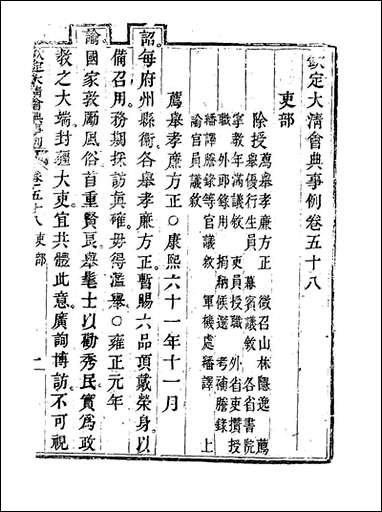 欽定大清會典事例卷五十八
吏部
除授薦舉孝廉方正 徵召山林隱逸 薦
舉優行生員 幕賓議敘 各省書院
掌教年滿議敘 吏員授職 外省吏攢授
職 外郎錄用 捐納候選 考補謄錄
繙譯謄錄等官議敘 軍機處繙譯 上
諭官員議敘
薦舉孝廉方正○康熙六十一年十一月
詔每府州縣衛各舉孝廉方正暫賜六品頂戴榮身以
備召用務期採訪眞確毋得濫舉○雍正元年
諭國家敦勵風俗首重賢良舉髦士以勸秀民實爲政
教之大端封疆大吏宜共體此意廣詢博訪不可視
欽定大清會典事例 卷五十八 吏部 一